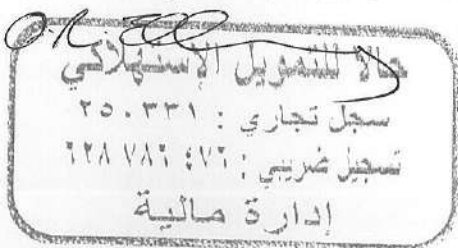 حالا للتمويل الإستهلاكي
سجل تجاري : ٢٥٠٣٣١
تسجيل ضريبي : ٤٧٦ ٧٨٦ ٦٢٨
إدارة مالية